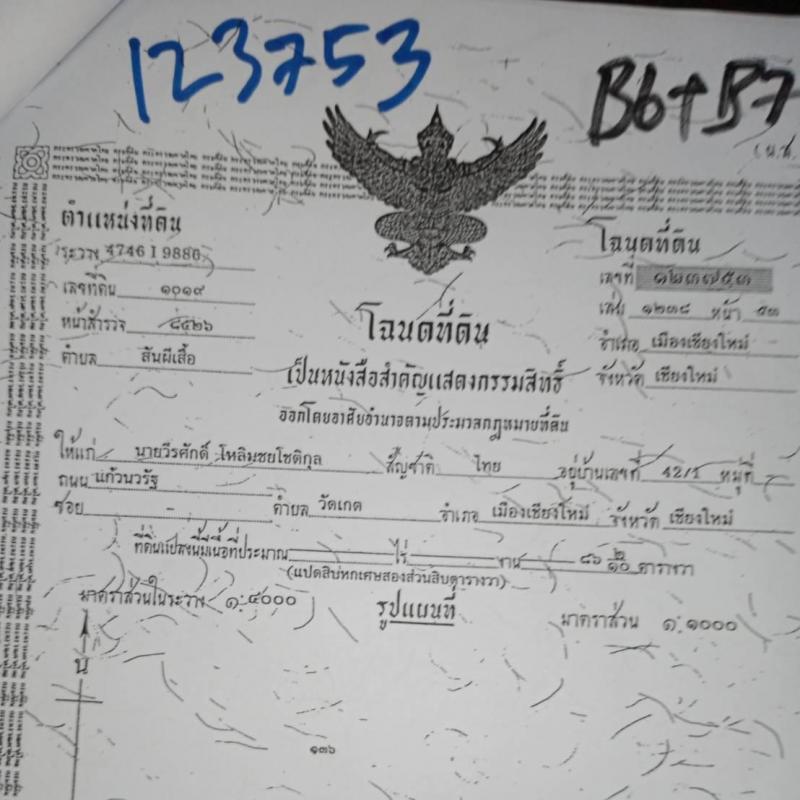 123753
B6+B7
(น.ส.
ตำแหน่งที่ดิน
ระวาง 4746 I 9880
เลขที่ดิน ๑๐๑๙
หน้าสำรวจ ๘๔๒๖
ตำบล สันผีเสื้อ
โฉนดที่ดิน
เลขที่ ๑๒๓๗๕๓
เล่ม ๑๒๓๘ หน้า ๕๓
อำเภอ เมืองเชียงใหม่
จังหวัด เชียงใหม่
โฉนดที่ดิน
เป็นหนังสือสำคัญแสดงกรรมสิทธิ์
ออกโดยอาศัยอำนาจตามประมวลกฎหมายที่ดิน
ให้แก่ นายวีรศักดิ์ โหลิมชยโชติกุล สัญชาติ ไทย อยู่บ้านเลขที่ 42/1 หมู่ที่ -
ถนน แก้วนวรัฐ
ซอย - ตำบล วัดเกต อำเภอ เมืองเชียงใหม่ จังหวัด เชียงใหม่
ที่ดินแปลงนี้มีเนื้อที่ประมาณ ไร่ งาน ๘๖ ๒/๑๐ ตารางวา
(แปดสิบหกเศษสองส่วนสิบตารางวา)
มาตราส่วนในระวาง ๑:๔๐๐๐ รูปแผนที่ มาตราส่วน ๑:๑๐๐๐
น
๑๓๖